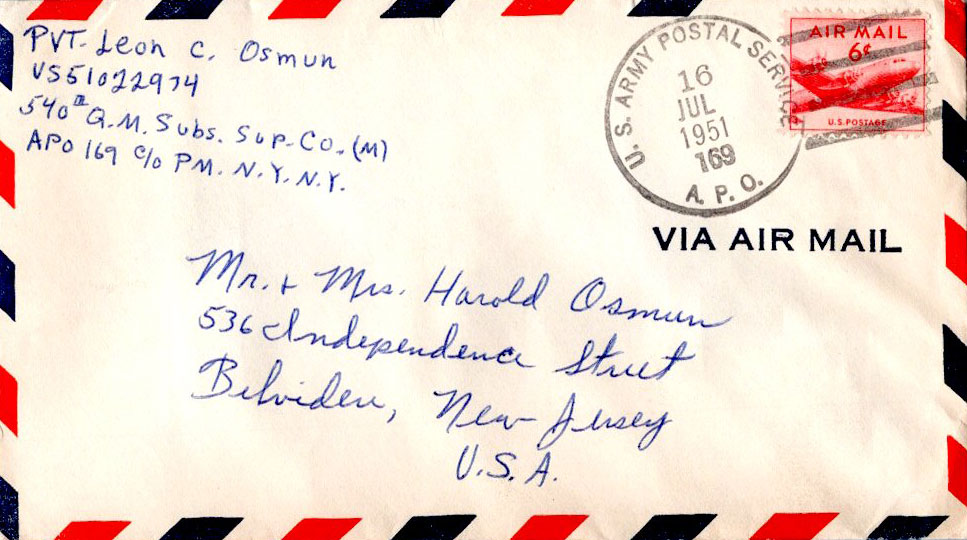 PVT. Leon C. Osmun
VS51022974
540th Q.M. Subs. Sup. Co. (M)
APO 169 c/o PM. N.Y. N.Y.
U. S. ARMY POSTAL SERVICE
16
JUL
1951
169
A. P. O.
AIR MAIL
6¢
U.S. POSTAGE
VIA AIR MAIL
Mr. + Mrs. Harold Osmun
536 Independence Street
Belvidere, New Jersey
U.S.A.